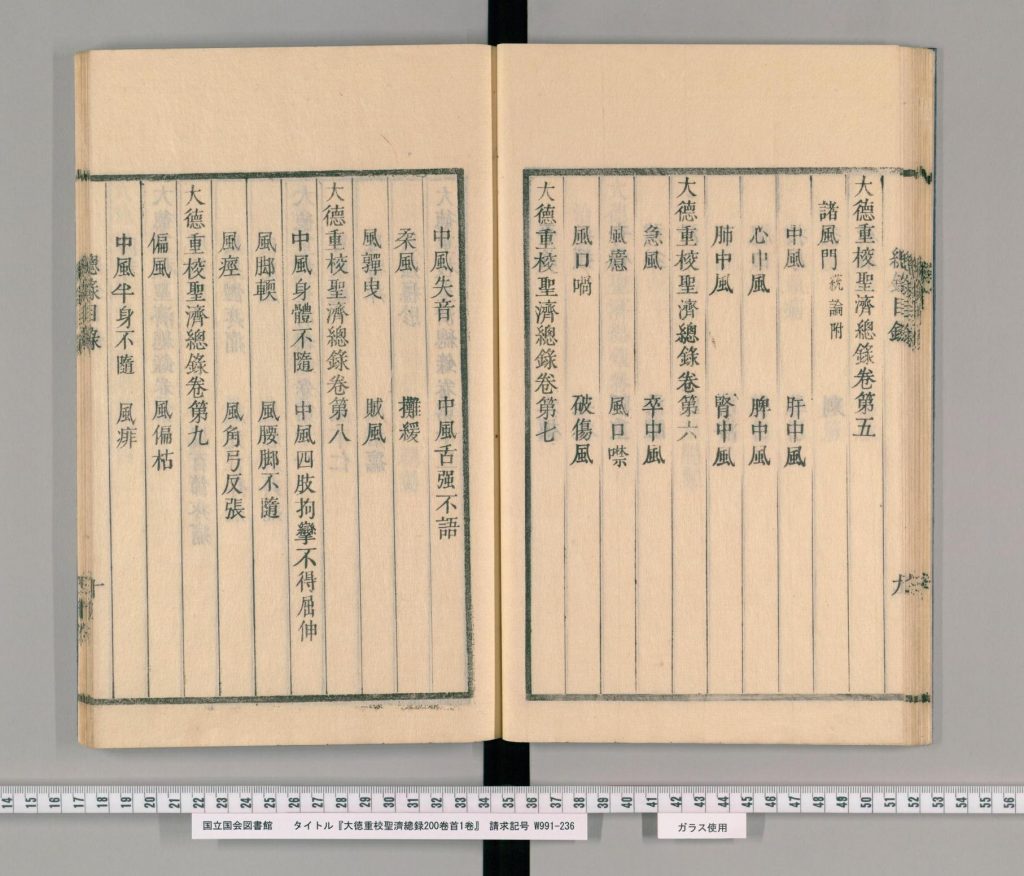 大德重校聖濟總錄卷第五
諸風門 統論附
中風 肝中風
心中風 脾中風
肺中風 腎中風
大德重校聖濟總錄卷第六
急風 卒中風
風癔 風口噤
風口喎 破傷風
大德重校聖濟總錄卷第七
總錄目錄 九
中風失音 中風舌强不語
柔風 攤緩
風嚲曳 賊風
大德重校聖濟總錄卷第八
中風身體不隨 中風四肢拘攣不得屈伸
風脚輭 風腰脚不隨
風痙 風角弓反張
大德重校聖濟總錄卷第九
偏風 風偏枯
中風半身不隨 風痱
總錄目錄 十
14 15 16 17 18 19 20 21 22 23 24 25 26 27 28 29 30 31 32 33 34 35 36 37 38 39 40 41 42 43 44 45 46 47 48 49 50 51 52 53 54 55 56
国立国会図書館 タイトル『大徳重校聖濟總録200巻首1巻』 請求記号 W991-236
ガラス使用